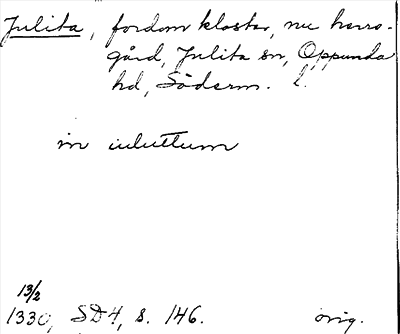 Julita, fordom kloster, nu herr-
gård, Julita sn, Oppunda
hd, Söderm. l.
in iuluttum
13/2
1330, SD4, s. 146. orig.